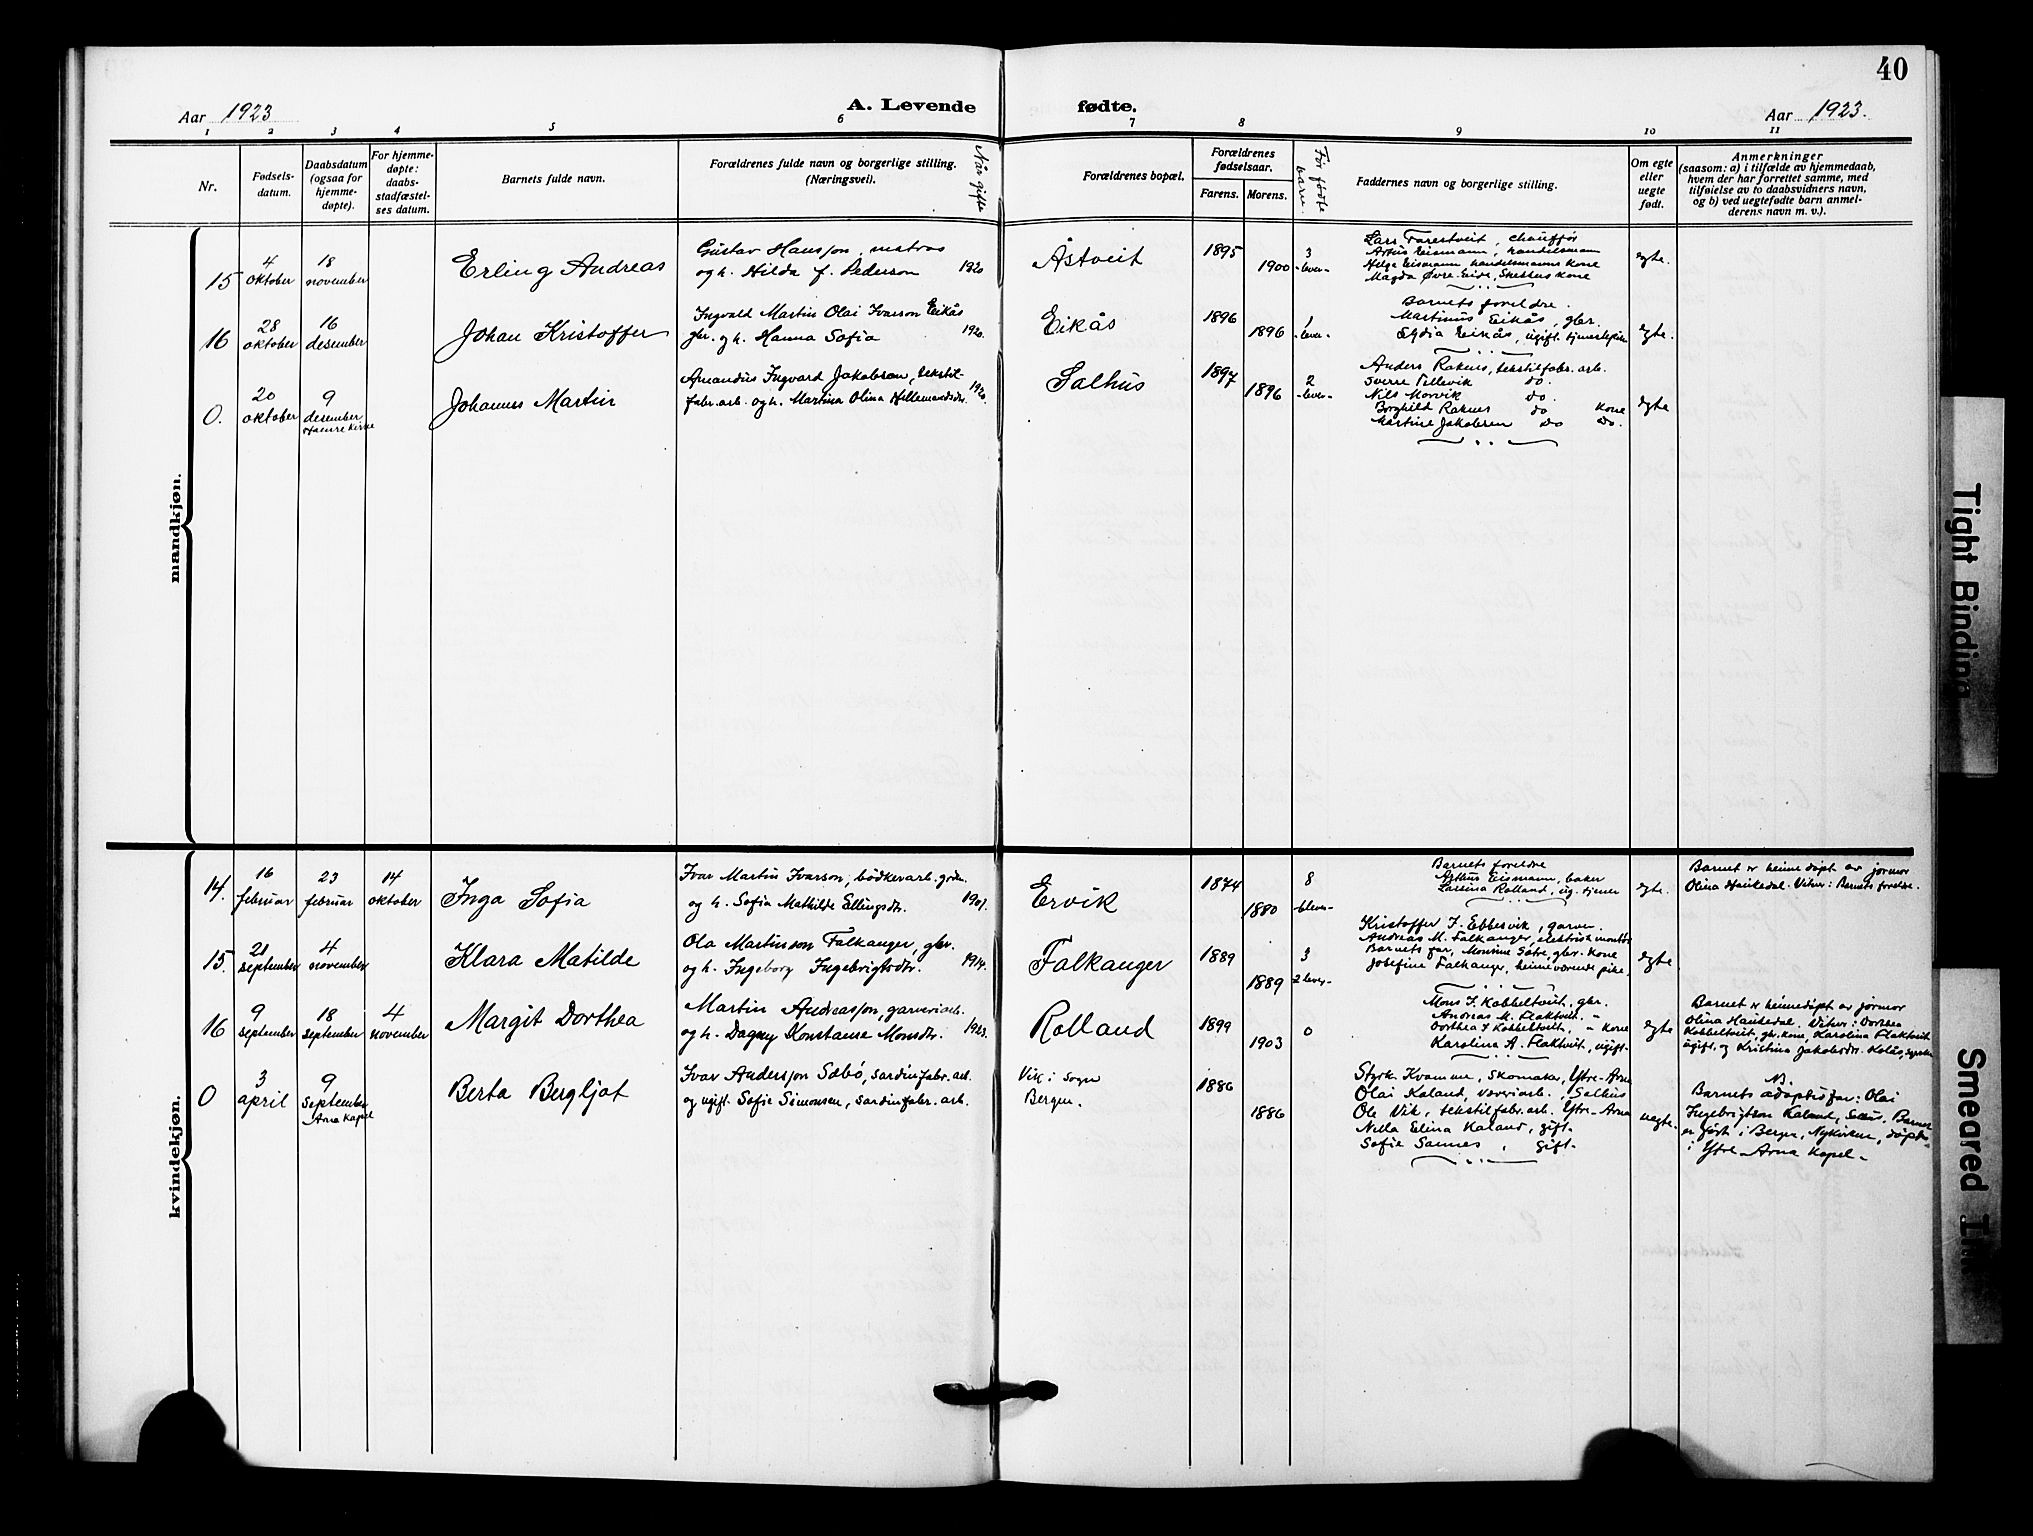 40
Aar 1923 A. Levende fødte. Aar 1923.
1 2 3 4 5 6 7 8 9 10 11
Nr.
Fødsels-
datum.
Daabsdatum
(ogsaa for
hjemme-
døpte).
For hjemme-
døpte:
daabs-
stadfæstel-
ses datum.
Barnets fulde navn.
Forældrenes fulde navn og borgerlige stilling.
(Næringsvei).
Når gifte
Forældrenes bopæl.
Forældrenes
fødselsaar.
Farens. Morens.
Før fødte
barn.
Faddernes navn og borgerlige stilling.
Om egte
eller
uegte
født.
Anmerkninger
(saasom: a) i tilfælde av hjemmedaab,
hvem der har forrettet samme, med
tilføielse av to daabsvidners navn,
og b) ved uegtefødte barn anmel-
derens navn m. v.).
mandkjøn.
15
4
oktober
18
november
Erling Andreas
Gustav Hansson, matros
og h. Hilda f. Pederson
1920
Åstveit
1895
1900
3
-lever-
Lars Forestveit, chauffør
Eismann, handelsmann
Helga Eismann handelsmanns kone
Magda Øvre-Eide, kone
egte.
16
28
oktober
16
desember
Johan Kristoffer
Ingvald Martin Olai Ivarson Eikås
gbr. og h. Hanna Sofia
1920.
Eikås
1896
1896
1
-lever-
Barnets foreldre.
Martinus Eikås, gbr.
Lydia Eikås, ugift.
egte.
0.
20
oktober
9
desember
kirke
Johannes Martin
Amandus Ingvard Jakobson, tekstil-
fabr. arb. og h. Martina Olina Hillemandsdtr.
1920.
Salhus
1897
1896
2
-lever-
Anders Raknes, tekstilfabr. arb.
Sverre Tellevik do.
Nils Morvik do.
Borghild Raknes do kone
Martine Jakobsen do do.
egte
kvindekjøn.
14.
16
februar
23
februar
14
oktober
Inga Sofia
Ivar Martin Ivarson, bødkerarb.
og h. Sofia Mathilde Ellingsdtr.
1901.
Ervik
1874
1880
8
-6 lever-
Barnets foreldre
Eismann, baker
Rolland, ug.
egte.
Barnet er heime døpt av jormor
Olina Haukedal. Vitner: Barnets foreldre.
15.
21
september
4
november
Klara Matilde
Ola Martinson Falkanger, gbr.
og h. Ingeborg Ingebrigtsdtr.
1914.
Falkanger
1889
1889
3
2 lever-
Kristoffer J. Ebbesvik, garver.
Andreas M. Falkanger, elektrisk montør
Barnets far, Monrine Sætre, gbr. kone
Josefine Falkanger, heimeværende pike.
egte
16
9
september
18
september
4
november
Margit Dorthea
Martin Andreasson, garveriarb.
og h. Dagny Konstanse Monsdtr.
1923.
Rolland
1899
1903
0
Mons J. Kobbeltveit, gbr.
Andreas M. Flaktveit. "
Dorthea J Kobbeltveit, " kone
Karolina A. Flaktveit, ugift.
egte
Barnet er heimedøpt av jormor
Olina Haukedal. Vitner: Dorthea
Kobbeltveit, gbr. kone, Karolina Flaktveit
ugift, og Kristina Jakobsdtr. Kolås,
0
3
april
9
september
Arna Kapel
Berta Bergljot
Ivar Andersson Sæbø, sardinfabr. arb.
og ugift. Sofie Simonsen, sardinfabr. arb.
Vik i Sogn
Bergen.
1886
1886
Styrk. Kvamme, skomaker, Ytre-Arna
Olai Kaland, væveriarb., Salhus
Ole Vik, tekstilfabr. arb. Ytre-Arna
Nilla Elina Kaland, gift.
Sofie Sannes, gift.
uegte.
NB.
Barnets adoptivfar: Olai
Ingebrigtson Kaland, Barnet
er født i Bergen, Nykirken, døpt
i Ytre-Arna Kapel.
Tight Binding
Smeared